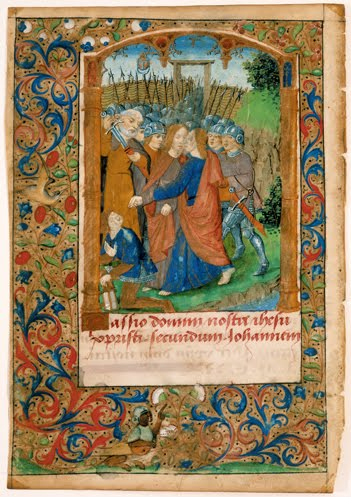 assio domini nostri ihesu
xpristi secundum Iohannem